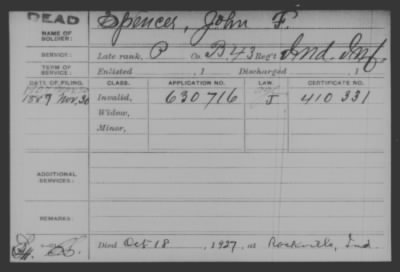 DEAD
NAME OF SOLDIER: Spencer, John F.
SERVICE: Late rank, P Co. B 43 Reg't Ind. Inf.
TERM OF SERVICE: Enlisted , 1 Discharged , 1
DATE OF FILING. CLASS. APPLICATION NO. LAW. CERTIFICATE NO.
1889 Nov. 30 Invalid, 630716 J 410331
Widow,
Minor,
ADDITIONAL SERVICES:
REMARKS:
Died Oct 18 , 1927, at Rockville, Ind.